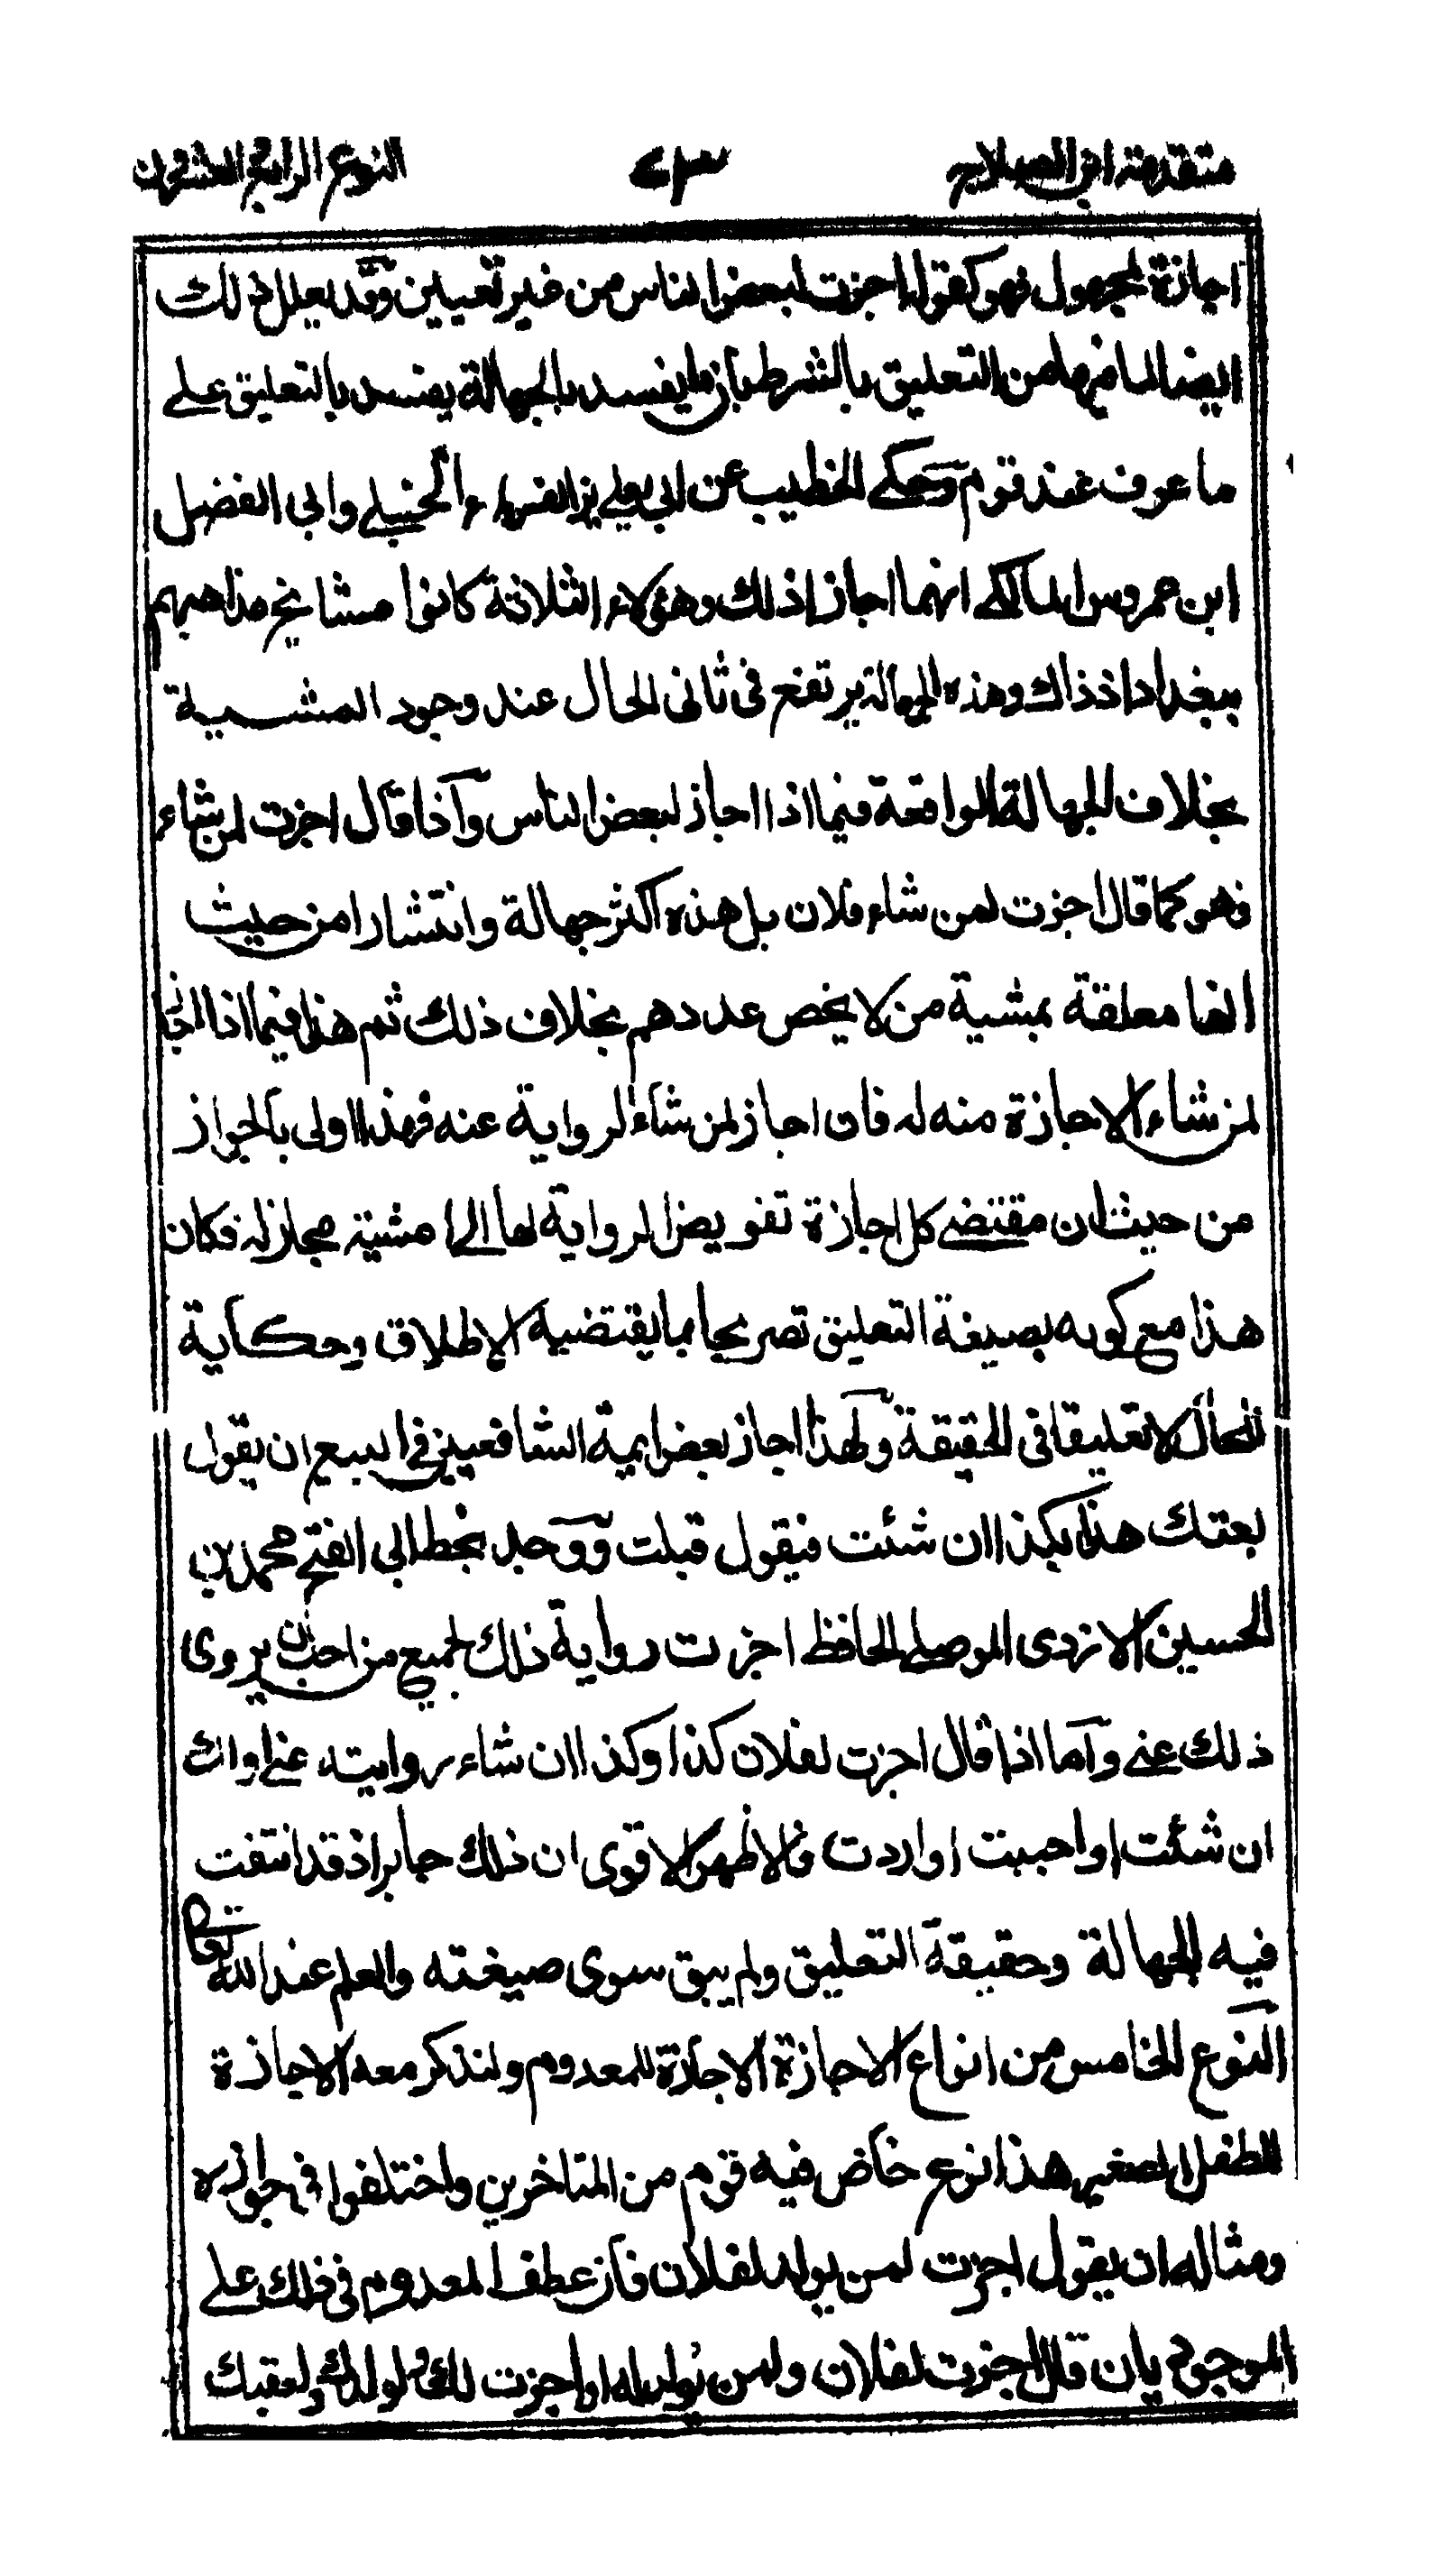 مقدمة ابن الصلاح ٧٣ النوع الرابع والعشرون
اجازة لمجهول فهو كقوله اجزت لبعض الناس من غير تعيين وقد يعلل ذلك
ايضا لما فيها من التعليق بالشرط بان ما يفسد بالجهالة يفسد بالتعليق على
ما عرف عند قوم وحكى الخطيب عن ابي يعلى بن الفراء الحنبلي وابي الفضل
ابن عمروس المالكي انهما اجازا ذلك وهؤلاء الثلاثة كانوا مشايخ مذاهبهم
ببغداد اذ ذاك وهذه الجهالة يرتفع في ثاني الحال عند وجود المشية
بخلاف الجهالة الواقعة فيما اذا اجاز لبعض الناس وآذا قال اجزت لمن شاء
فهو كما قال اجزت لمن شاء فلان بل هذه اكثر جهالة وانتشارا من حيث
انها معلقة بمشية من لا يخص عددهم بخلاف ذلك ثم هذا فيما اذا اجاز
لمن شاء الاجازة منه له فان اجاز لمن شاء الرواية عنه فهذا اولى بالجواز
من حيث ان مقتضى كل اجازة تفويض الرواية لها الى مشية مجاز له فكان
هذا مع كونه بصيغة التعليق تصريحا بما يقتضيه الاطلاق وحكاية
للحال لا تعليقا في الحقيقة ولهذا اجاز بعض ايمة الشافعيين في البيع ان يقول
بعتك هذا بكذا ان شئت فيقول قبلت ووجد بخط ابي الفتح محمد بن
الحسين الازدي الموصلي الحافظ اجزت رواية ذلك لجميع من احب ان يروى
ذلك عني وآما اذا قال اجزت لفلان كذا وكذا ان شاء روايته عني اولك
ان شئت او احببت او اردت فالاظهر الاقوى ان ذلك جايز اذ قد انتفت
فيه الجهالة وحقيقة التعليق ولم يبق سوى صيغته والعلم عند الله تعالى
النوع الخامس من انواع الاجازة الاجازة للمعدوم ولنذكر معه الاجازة
للطفل الصغير هذا نوع خاض فيه قوم من المتاخرين واختلفوا في جوازه
ومثاله ان يقول اجزت لمن يولد لفلان فان عطف المعدوم في ذلك على
الموجود بان قال اجزت لفلان ولمن يولد له او اجزت لك ولولدك ولعقبك